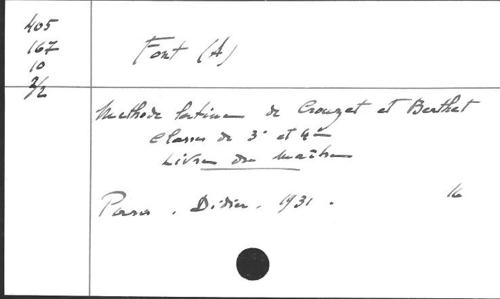 405
167
10
2/2
Font (A)
Methode latine de Crouzet et Berthet
Classes de 3e et 4e
Livre du Maître
Paris. Didier. 1931.
16